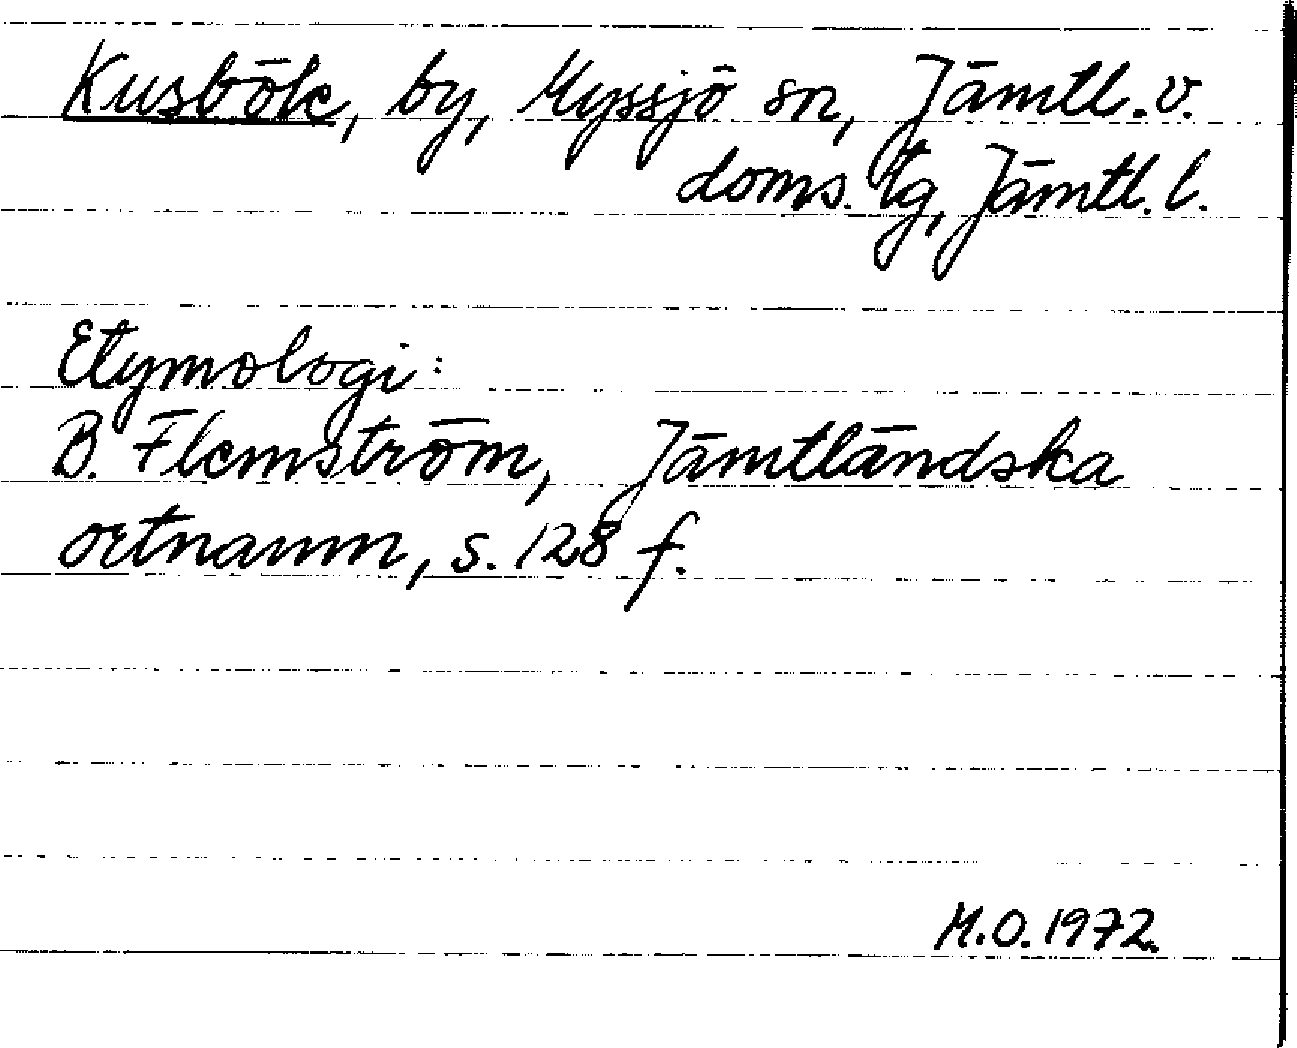 Kusböle, by, Myssjö sn, Jämtl.v.
doms. tg, Jämtl. l.
Etymologi:
B. Flemström, Jämtländska
ortnamn, s. 128 f.
M.O. 1972.